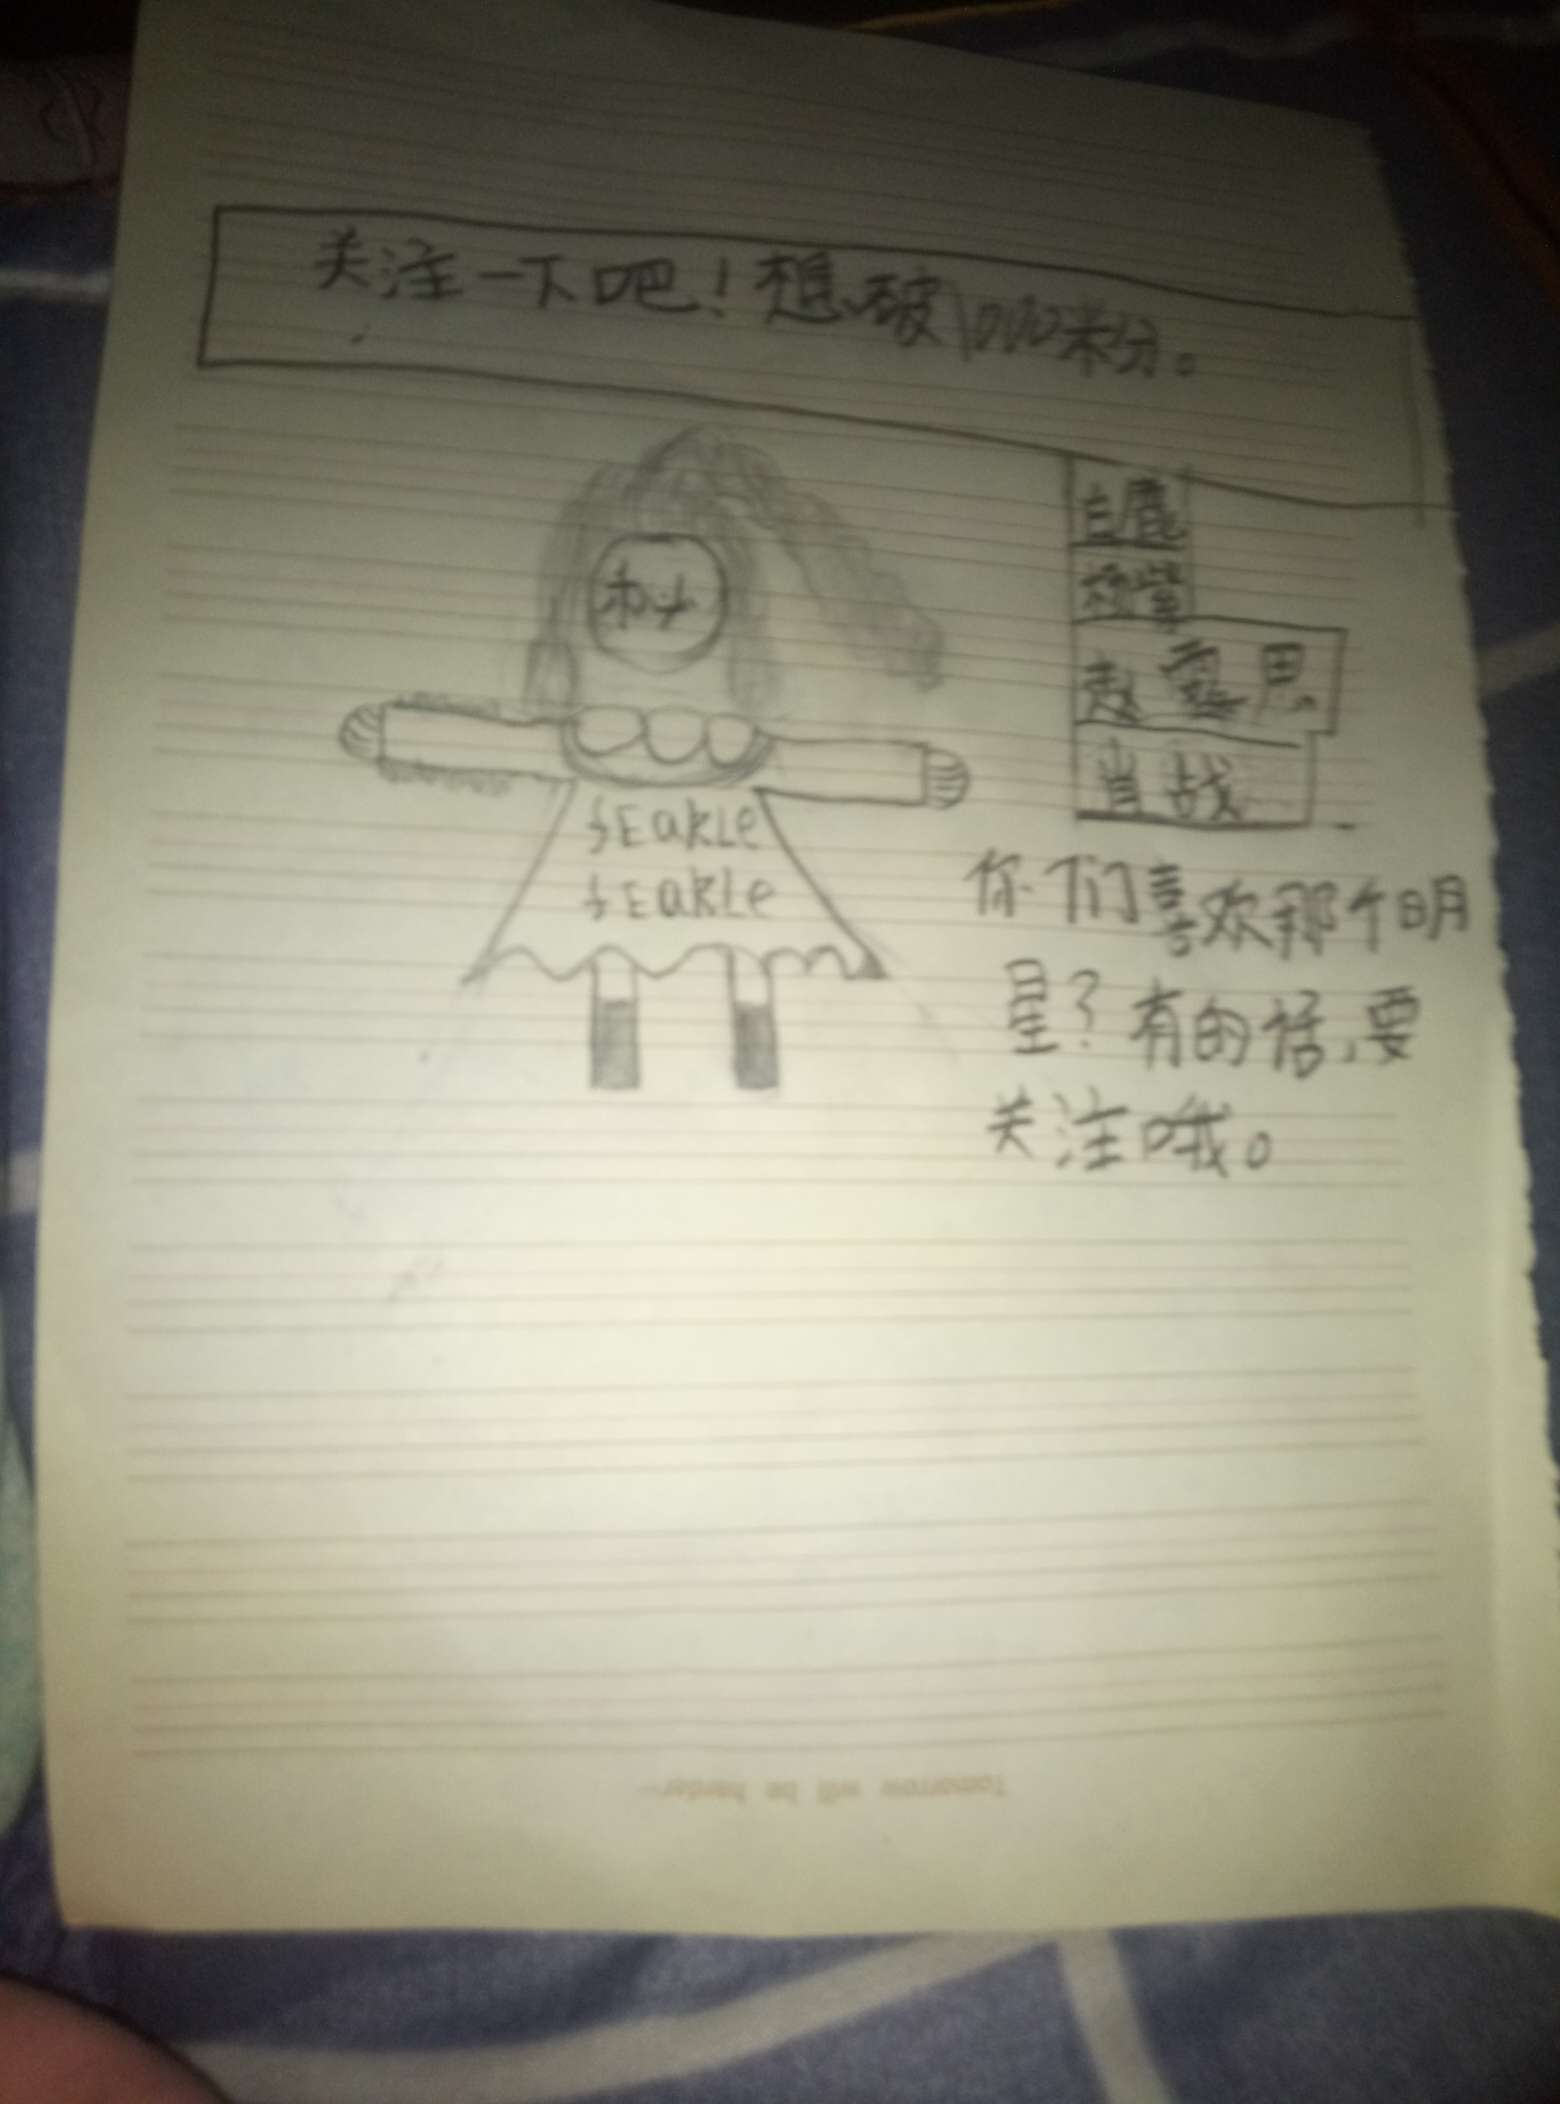 关注一下吧！想破1000米分。
白鹿
杨紫
赵露思
肖战
SEakLe
SEakLe
你们喜欢那个明
星？有的话,要
关注哦。
Tomorrow will be harder